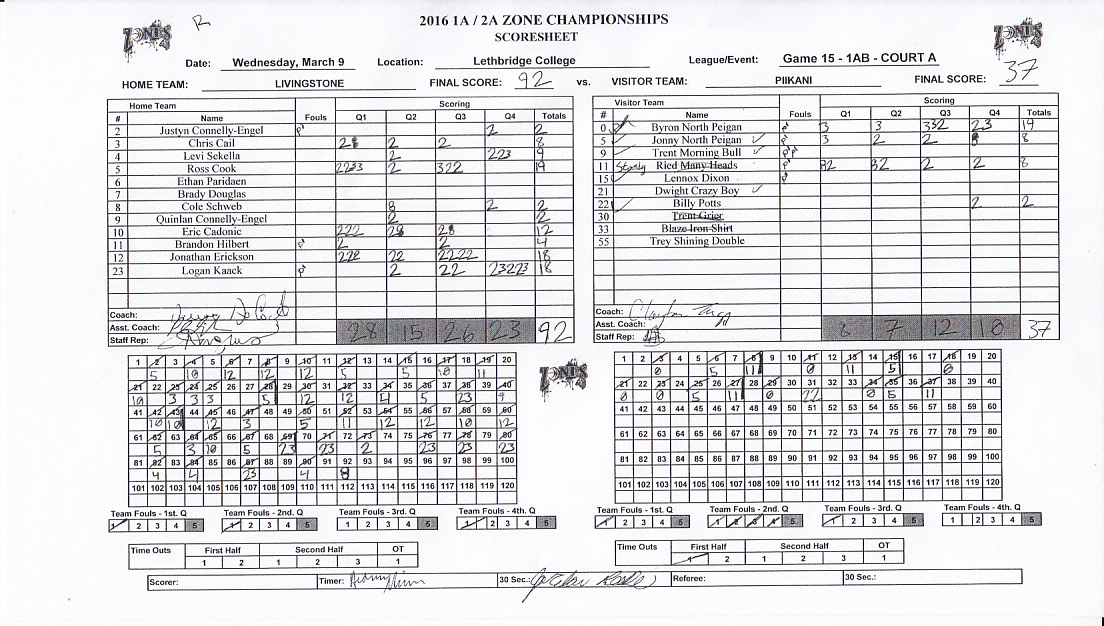 2016 1A / 2A ZONE CHAMPIONSHIPS
SCORESHEET
ZONES
ZONES
R
Date: Wednesday, March 9 Location: Lethbridge College League/Event: Game 15 - 1AB - COURT A
HOME TEAM: LIVINGSTONE FINAL SCORE: 92 vs. VISITOR TEAM: PIIKANI FINAL SCORE: 37
Home Team Scoring
# Name Fouls Q1 Q2 Q3 Q4 Totals
2 Justyn Connelly-Engel 2 2
3 Chris Cail 2 2 8
4 Levi Sekella 2 223 9
5 Ross Cook 2233 2 322 19
6 Ethan Paridaen
7 Brady Douglas
8 Cole Schweb 2 2
9 Quinlan Connelly-Engel 2 2
10 Eric Cadonic 222 12
11 Brandon Hilbert 2 2 4
12 Jonathan Erickson 222 22 2222 18
23 Logan Kaack 2 22 23223 18
Coach:
Asst. Coach:
Staff Rep:
28 15 26 23 92
Visitor Team Scoring
# Name Fouls Q1 Q2 Q3 Q4 Totals
0 Byron North Peigan 3 3 332 23 19
5 Jonny North Peigan 3 2 2 8
9 Trent Morning Bull
11 Ried Many Heads 2 2 8
15 Lennox Dixon
21 Dwight Crazy Boy
22 Billy Potts 2 2
30 Trent Grier
33 Blaze Iron Shirt
55 Trey Shining Double
Coach:
Asst. Coach:
Staff Rep:
8 7 12 10 37
1 2 3 4 5 6 7 8 9 10 11 12 13 14 15 16 17 18 19 20
5 10 12 12 12 5 5 10 11
21 22 23 24 25 26 27 28 29 30 31 32 33 34 35 36 37 38 39 40
10 3 3 3 5 12 12 4 5 23 9
41 42 43 44 45 46 47 48 49 50 51 52 53 54 55 56 57 58 59 60
10 10 12 3 5 11 12 12 10 12
61 62 63 64 65 66 67 68 69 70 71 72 73 74 75 76 77 78 79 80
5 3 10 5 23 23 2 23 23 23
81 82 83 84 85 86 87 88 89 90 91 92 93 94 95 96 97 98 99 100
4 4 23 4 8
101 102 103 104 105 106 107 108 109 110 111 112 113 114 115 116 117 118 119 120
ZONES
1 2 3 4 5 6 7 8 9 10 11 12 13 14 15 16 17 18 19 20
0 5 11 0 11 5 0
21 22 23 24 25 26 27 28 29 30 31 32 33 34 35 36 37 38 39 40
0 0 5 11 0 22 0 5 11
41 42 43 44 45 46 47 48 49 50 51 52 53 54 55 56 57 58 59 60
61 62 63 64 65 66 67 68 69 70 71 72 73 74 75 76 77 78 79 80
81 82 83 84 85 86 87 88 89 90 91 92 93 94 95 96 97 98 99 100
101 102 103 104 105 106 107 108 109 110 111 112 113 114 115 116 117 118 119 120
Team Fouls - 1st. Q Team Fouls - 2nd. Q Team Fouls - 3rd. Q Team Fouls - 4th. Q
1 2 3 4 5 1 2 3 4 5 1 2 3 4 5 1 2 3 4 5
Team Fouls - 1st. Q Team Fouls - 2nd. Q Team Fouls - 3rd. Q Team Fouls - 4th. Q
1 2 3 4 5 1 2 3 4 5 1 2 3 4 5 1 2 3 4 5
Time Outs First Half Second Half OT
1 2 1 2 3 1
Time Outs First Half Second Half OT
1 2 1 2 3 1
Scorer: Timer: 30 Sec.: Referee: 30 Sec.: